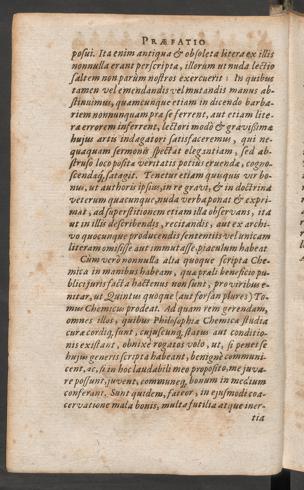 PRÆFATIO
posui. Ita enim antiqua & obsoleta litera ex illis
nonnulla erant perscripta, illorum ut nuda lectio
saltem non parùm nostros exercuerit: In quibus
tamen vel emendandis vel mutandis manus ab-
stinuimus, quamcunque etiam in dicendo barba-
riem nonnunquam præ se ferrent, aut etiam lite-
ræ errorem inferrent, lectori modò & gravissimæ
hujus artis indagatori satisfaceremus, qui ne-
quaquam sermonis spectat elegantiam, sed ab-
struso loco posita veritatis potius eruenda, cogno-
scendaq́; satagit. Tenetur etiam quisquis vir bo-
nus, ut authoris ipsius, in re gravi, & in doctrina
veterum quacunque, nuda verba ponat & expri-
mat, ad superstitionem etiam illa observans, ita
ut in illis describendis, recitandis, aut ex archi-
vo quocunque producendis sententiis vel unicam
literam omisisse aut immutasse, piaculum habeat.
Cùm verò nonnulla alia quoque scripta Che-
mica in manibus habeam, qua præli beneficio pu-
blici juris facta hactenus non sunt, pro viribus e-
nitar, ut Quintus quoque (aut forsan plures) To-
mus Chemicus prodeat. Ad quam rem gerendam,
omnes illos, quibus Philosophia Chemica studia
cura cordiq́; sunt, cujuscunq́; status aut conditio-
nis existant, obnixè rogatos volo, ut, si penes se
hujus generis scripta habeant, benignè communi-
cent, ac, si in hoc laudabili meo proposito, me juva-
re possunt, juvent, communeq́; bonum in medium
conferant. Sunt quidem, fateor, in ejusmodi coa-
cervatione mala bonis, multa futilia atque iner-
tia